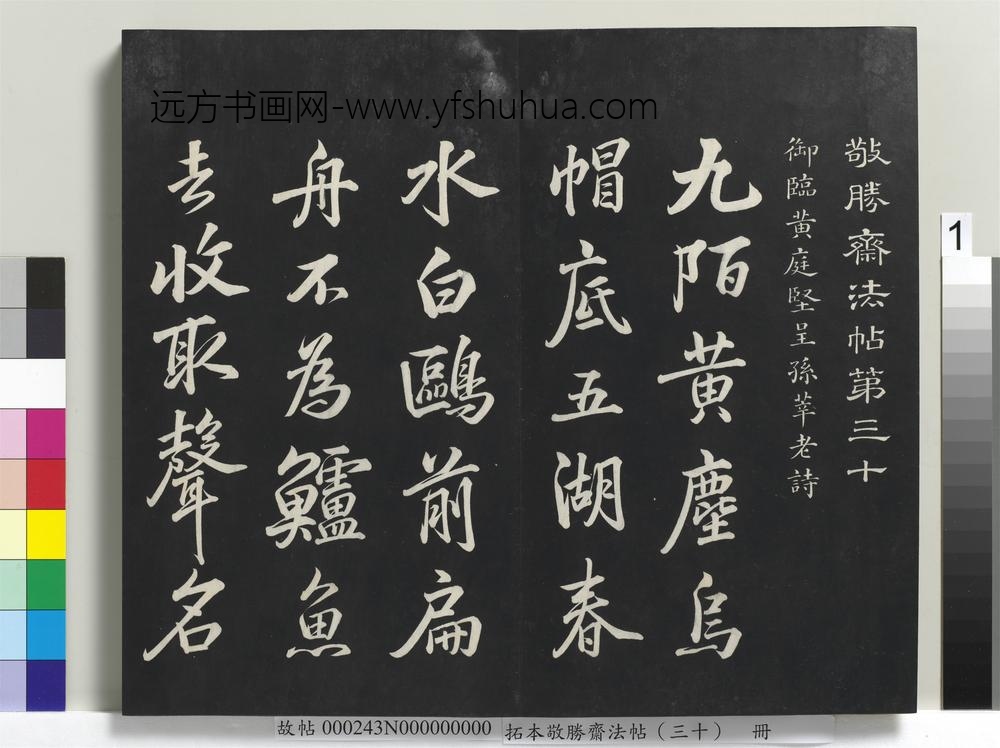 远方书画网-www.yfshuhua.com
敬勝齋法帖第三十
御臨黃庭堅呈孫莘老詩
九陌黃塵烏
帽底五湖春
水白鷗前扁
舟不為鱸魚
去收取聲名
1
故帖 000243N000000000 拓本敬勝齋法帖（三十） 冊